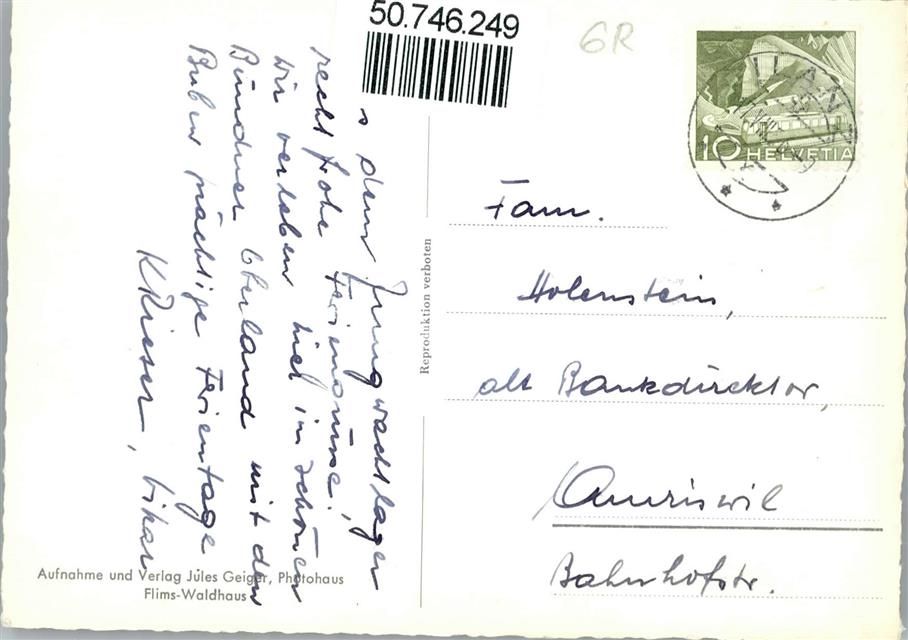 50.746.249
GR
ILANZ
10 HELVETIA
s dem Jungwachtlager
recht frohe Feriengrüsse!
Wir verleben hier im schönen
Bündner Oberland mit den
Buben prächtige Ferientage
K Rieser, Vikar
Reproduktion verboten
Fam.
Holenstein,
alt Bankdirektor,
Amriswil
Bahnhofstr.
Aufnahme und Verlag Jules Geiger, Photohaus
Flims-Waldhaus